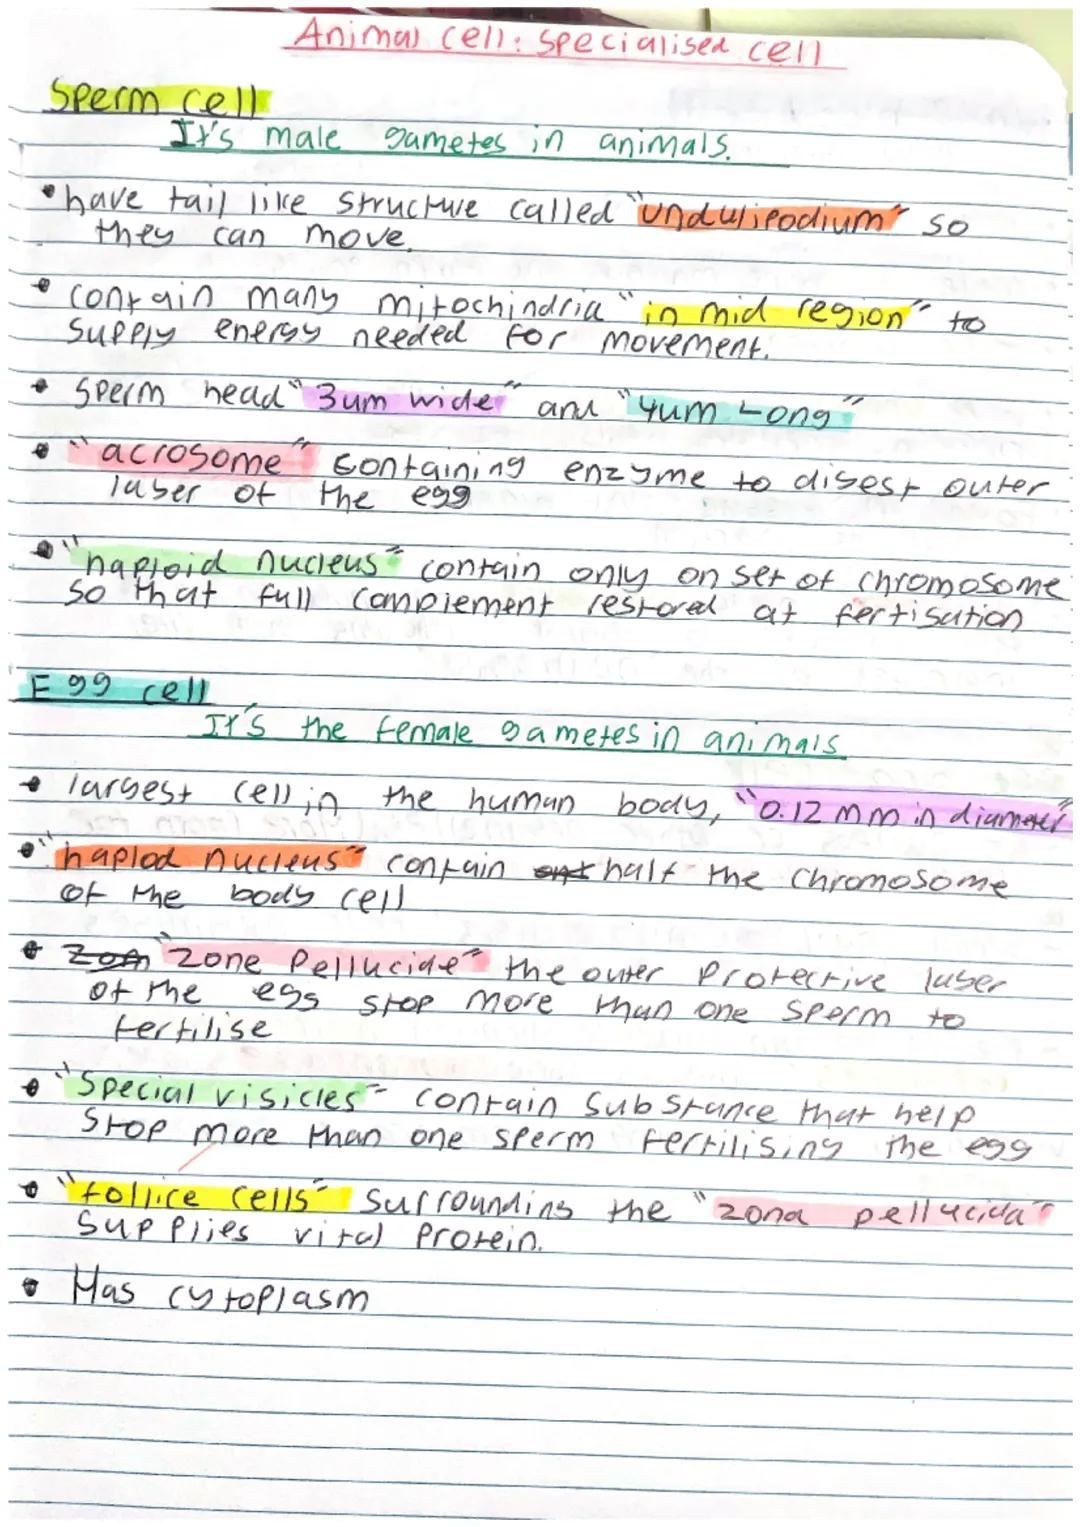 Animal cell: specialised cell
Sperm cell
It's male gametes in animals.
• have tail like structure called "undulipodium" so
they can move.
• contain many mitochindria "in mid region" to
supply energy needed for movement.
• sperm head "3um wide" and "4um Long"
• "acrosome" containing enzyme to digest outer
layer of the egg
• "haploid nucleus" contain only on set of chromosome
so that full complement restored at fertisation
Egg cell
It's the female gametes in animals
• largest cell in the human body, "0.12 mm in diameter"
• "haplod nucleus" contain half the chromosome
of the body cell
• "zone Pellucide" the outer protective layer
of the egg stop more than one sperm to
fertilise
• "Special visicles" contain substance that help
stop more than one sperm fertilising the egg
• "follice cells" surrounding the "zona pellucida"
supplies vital protein.
• Has cytoplasm